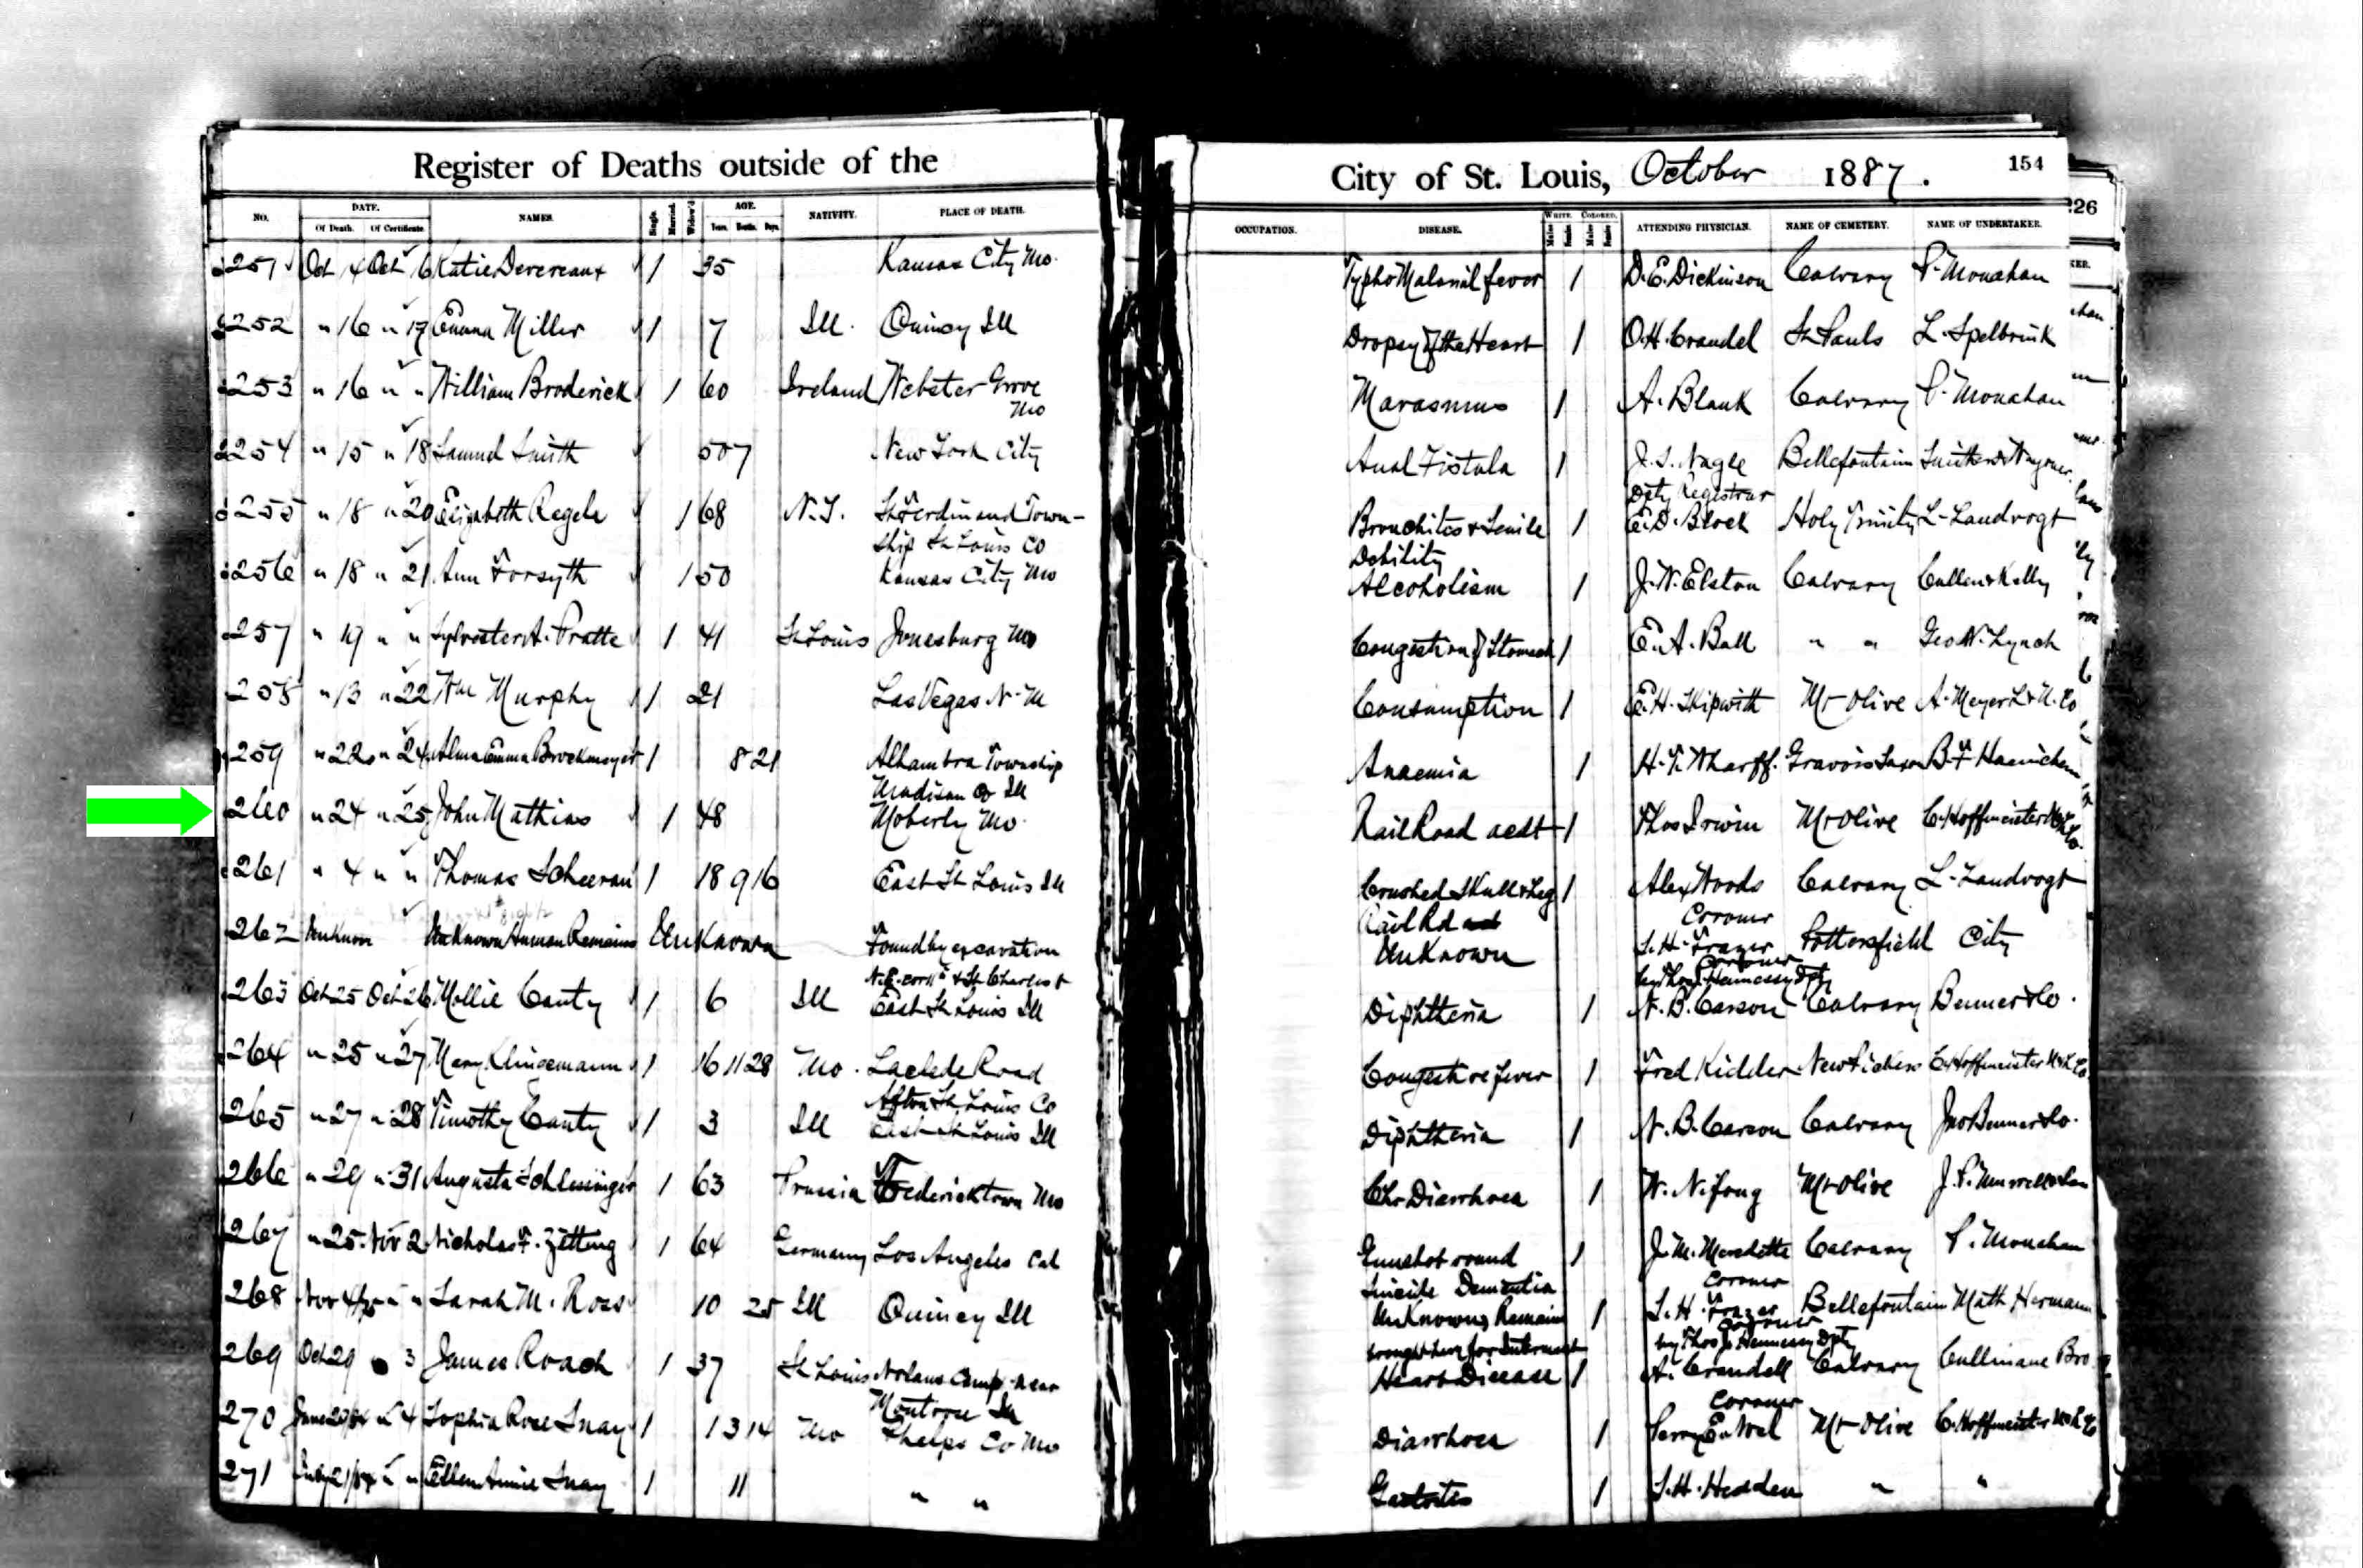 Register of Deaths outside of the
City of St. Louis, October 1887.
154
226
NO. DATE. Of Death. Of Certificate. NAMES. Single. Married. Widow'd AGE. Years. Months. Days. NATIVITY. PLACE OF DEATH.
OCCUPATION. DISEASE. WHITE. Males Females COLORED. Males Females ATTENDING PHYSICIAN. NAME OF CEMETERY. NAME OF UNDERTAKER.
251 Oct 14 Oct 16 Katie Devereaux 1 35 Kansas City Mo. Typho Malarial fever 1 D.E. Dickinson Calvary P. Monahan
252 " 16 " 17 Emma Miller 1 7 Ill. Quincy Ill Dropsy of the Heart 1 O.H. Crandel St Pauls L. Spelbrink
253 " 16 " " William Broderick 1 60 Ireland Webster Grove Marasmus 1 A. Blank Calvary P. Monahan
Mo
254 " 15 " 18 Samuel Smith 50 7 New York City Anal Fistula 1 J.S. Nagle Bellefontain
Dpty Registrar
255 " 18 " 20 Elizabeth Regele 1 68 N.Y. St Ferdinand Town- Bronchites & Senile 1 E.D. Block Holy Trinity L. Landvogt
ship St Louis Co Debility
256 " 18 " 21 Ann Forsyth 1 50 Kansas City Mo Alcoholism 1 J.W. Elston Calvary Cullen & Kelly
257 " 19 " " Sylvester A. Pratte 1 41 St Louis Jonesburg Mo Congestion of Stomach 1 E.A. Ball " " Geo W. Lynch
258 " 13 " 22 Wm Murphy 1 21 Las Vegas N.M Consumption 1 E.H. Skipwith Mt Olive A. Meyer L & U. Co
259 " 22 " 24 Alma Emma Brockmeyer 1 8 21 Alhambra Township Anaemia 1 H.T. Wharff. Gravois B.F. Haenichen
Madison Co Ill
260 " 24 " 25 John Mathias 1 48 Moberly Mo. Rail Road acdt 1 Thos Irwin Mt Olive C. Hoffmeister
261 " 4 " " Thomas Scheeran 1 18 9 16 East St Louis Ill Crushed Skull & Leg 1 Alex Woods Calvary L. Landvogt
Rail Rd Coroner
262 Unknown Unknown Human Remains Unknown Found by excavation Unknown S.H. Frazer Pottersfield City
Coroner
by Thos J Hennessy Dpty
263 Oct 25 Oct 26 Mollie Canty 1 6 Ill East St Louis Ill Diphtheria 1 N.B. Carson Calvary Benner & Co.
264 " 25 " 27 Mary Klingemann 1 16 11 28 Mo. Laclede Road Congestive fever 1 Fred Kidder New Pickers C. Hoffmeister
Afton St Louis Co
265 " 27 " 28 Timothy Canty 1 3 Ill East St Louis Ill Diphtheria 1 N.B. Carson Calvary Jno Benner & Co.
266 " 29 " 31 Augusta Schlesinger 1 63 Prussia Fredericktown Mo Chr Diarrhoea 1 W. Nifong Mt Olive
267 " 25 Nov 2 Nicholas F. Zitting 1 64 Germany Los Angeles Cal Gunshot wound 1 J.M. Meredith Calvary P. Monahan
Suicide Dementia Coroner
268 Nov " " Sarah M. Ross 10 25 Ill Quincy Ill Unknown, Remains 1 S.H. Frazer Bellefontain Math Hermann
Coroner
brought here for Interment by Thos J Hennessy Dpty
269 Oct 29 3 James Roach 1 37 St Louis Nolans Camp near Heart Disease 1 A. Crandell Calvary Cullinane Bro
Montrose Coroner
270 June 29/84 " 4 Sophia Rose Snay 1 1 3 14 Mo Phelps Co Mo Diarrhoea 1 Mt Olive C. Hoffmeister
271 July 21/84 " " Ellen Annie Snay 1 11 " " Gastritis 1 S.H. Hedden " "